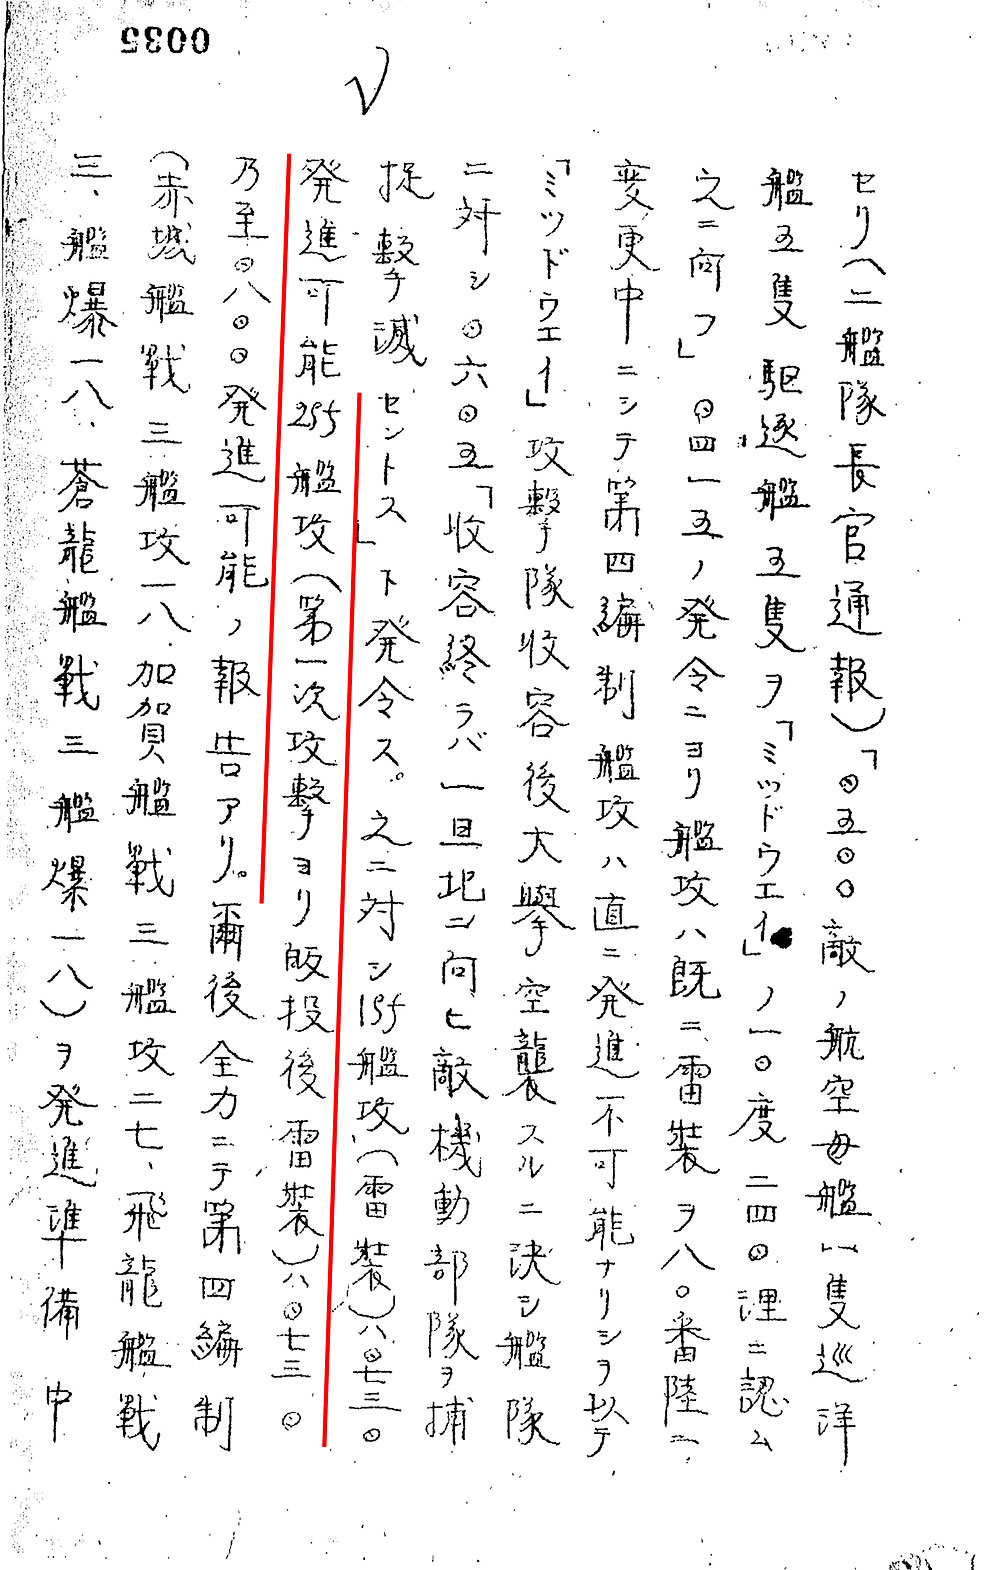 0035
セリ(二艦隊長官通報)「〇五〇〇敵ノ航空母艦一隻巡洋
艦五隻駆逐艦五隻ヲ「ミッドウエイ」ノ一〇度二四〇浬ニ認ム
之ニ向フ」〇四一五ノ発令ニヨリ艦攻ハ既ニ雷装ヲ八〇番陸ニ
変更中ニシテ第四編制艦攻ハ直ニ発進不可能ナリシヲ以テ
「ミツドウエイ」攻撃隊收容後大擧空襲スルニ決シ艦隊
ニ対シ〇六〇五「收容終ラバ一旦北ニ向ヒ敵機動部隊ヲ捕
捉撃滅セントス」ト発令ス。之ニ対シ1Sf艦攻(雷装)ハ〇七三〇
発進可能2Sf艦攻(第一次攻撃ヨリ皈投後雷装)ハ〇七三〇
乃至〇八〇〇発進可能ノ報告アリ。爾後全力ニテ第四編制
(赤城艦戦三艦攻一八、加加賀艦戦三艦攻二七、飛龍艦戦
三、艦爆一八、蒼龍艦戦三艦爆一八)ヲ発進準備中